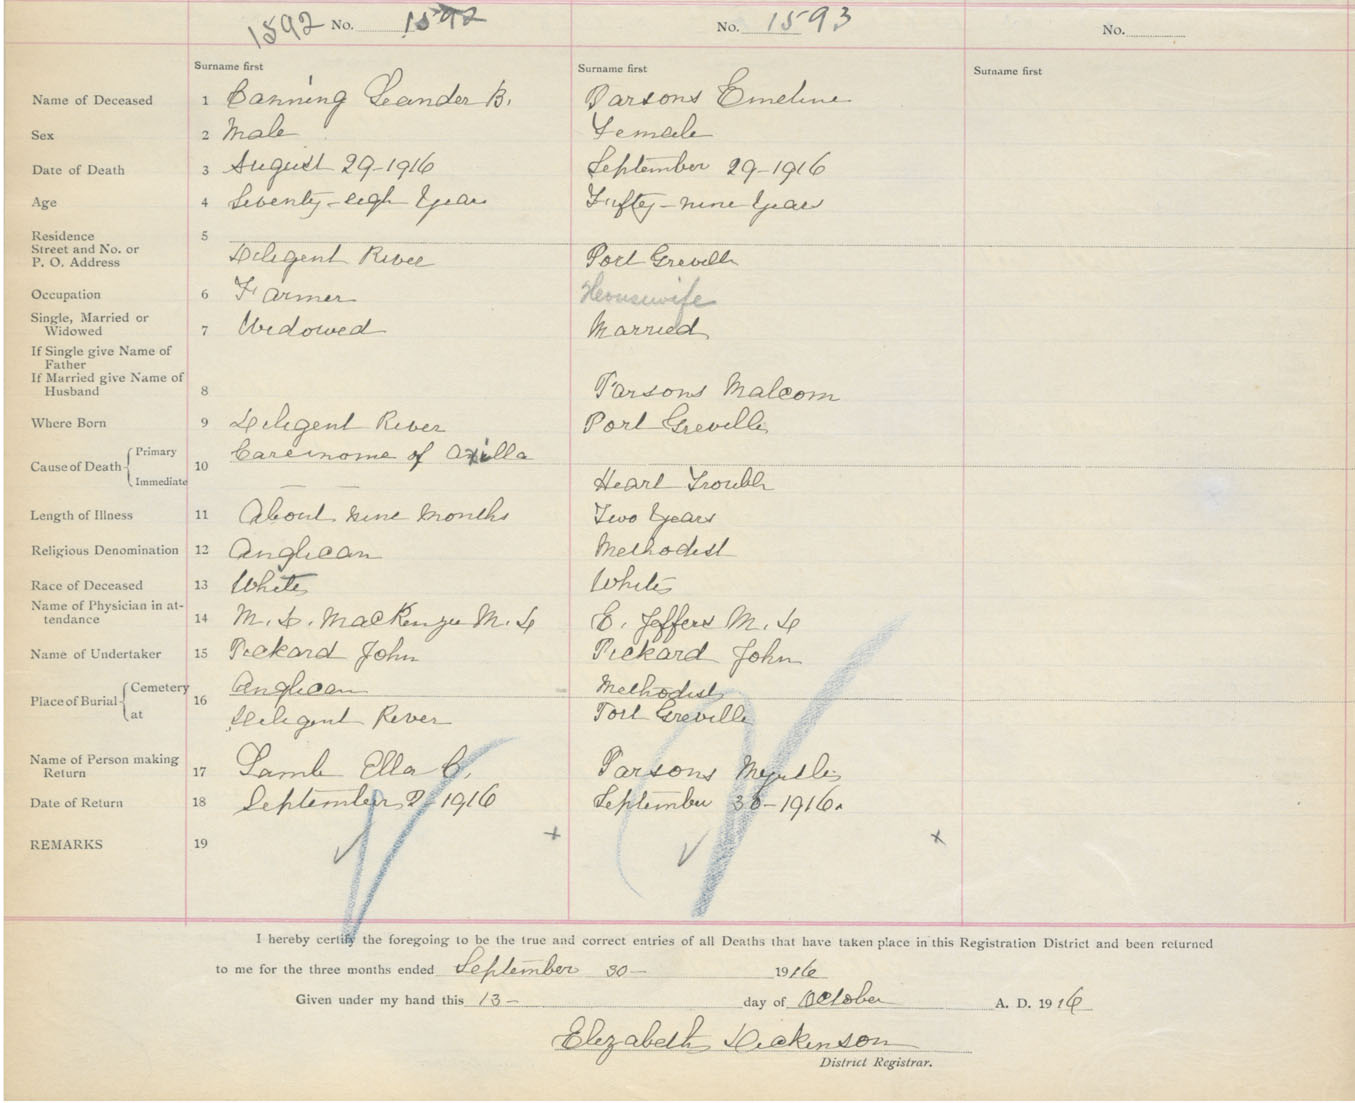 1592 No. 1592 No. 1593 No.
Surname first Surname first Surname first
Name of Deceased 1 Canning Leander B. Parsons Emeline
Sex 2 Male Female
Date of Death 3 August 29-1916 September 29-1916
Age 4 Seventy-eigh Years Fifty-nine Years
Residence 5
Street and No. or
P. O. Address Diligent River Port Greville
Occupation 6 Farmer Housewife
Single, Married or
Widowed 7 Widowed Married
If Single give Name of
Father
If Married give Name of
Husband 8 Parsons Malcom
Where Born 9 Diligent River Port Greville
Cause of Death Primary 10 Carcinome of Axilla
Immediate — — Heart Trouble
Length of Illness 11 About nine months Two Years
Religious Denomination 12 Anglican Methodist
Race of Deceased 13 White White
Name of Physician in at-
tendance 14 M. D. MacKenzie M. D E. Jeffers M. D
Name of Undertaker 15 Pickard John Pickard John
Place of Burial Cemetery 16 Anglican Methodist
at Diligent River Port Greville
Name of Person making
Return 17 Lamb Ella C. Parsons Myrtle
Date of Return 18 September 2-1916 September 30-1916.
REMARKS 19
I hereby certify the foregoing to be the true and correct entries of all Deaths that have taken place in this Registration District and been returned
to me for the three months ended September 30- 1916
Given under my hand this 13- day of October A. D. 1916
Elizabeth Dickinson
District Registrar.